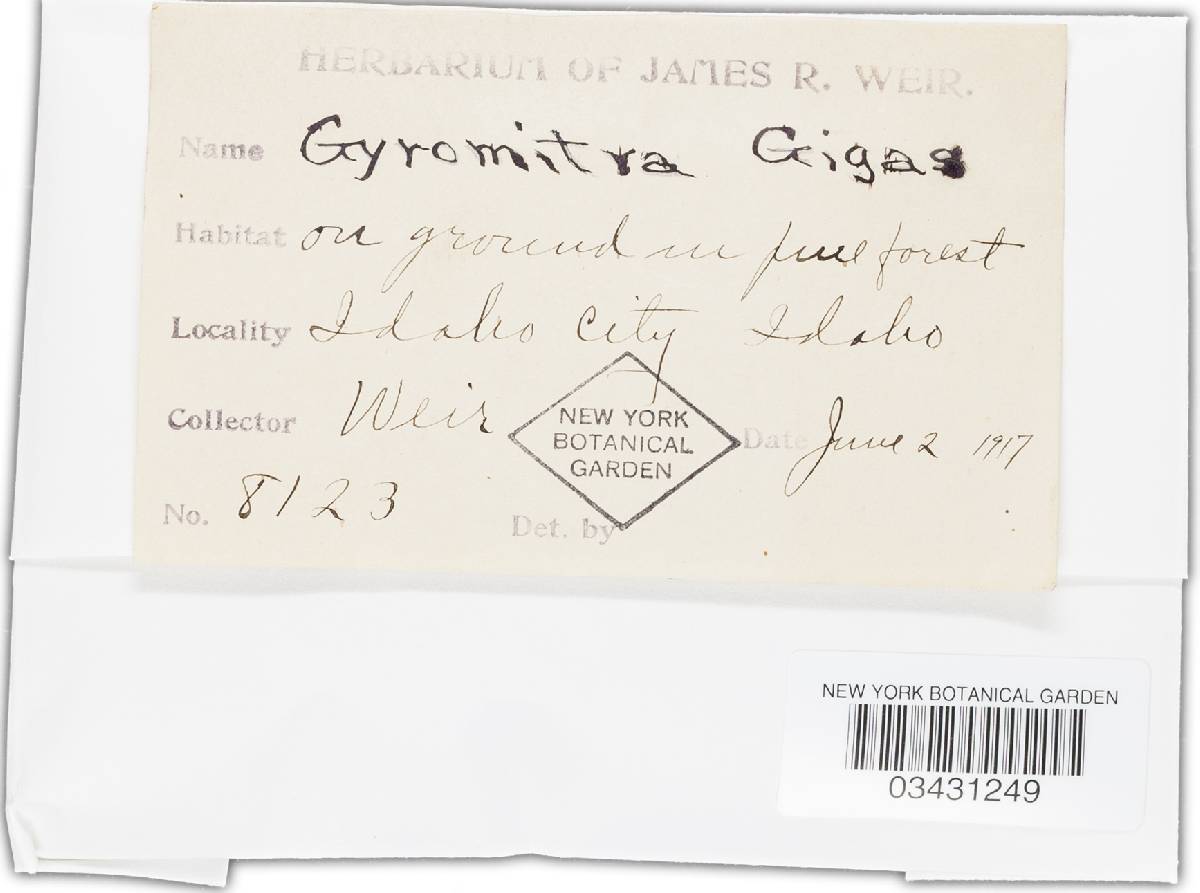 HERBARIUM OF JAMES R. WEIR.
Name Gyromitra Gigas
Habitat on ground in pine forest
Locality Idaho City Idaho
Collector Weir
NEW YORK
BOTANICAL
GARDEN
Date June 2 1917
No. 8123
Det. by
NEW YORK BOTANICAL GARDEN
03431249